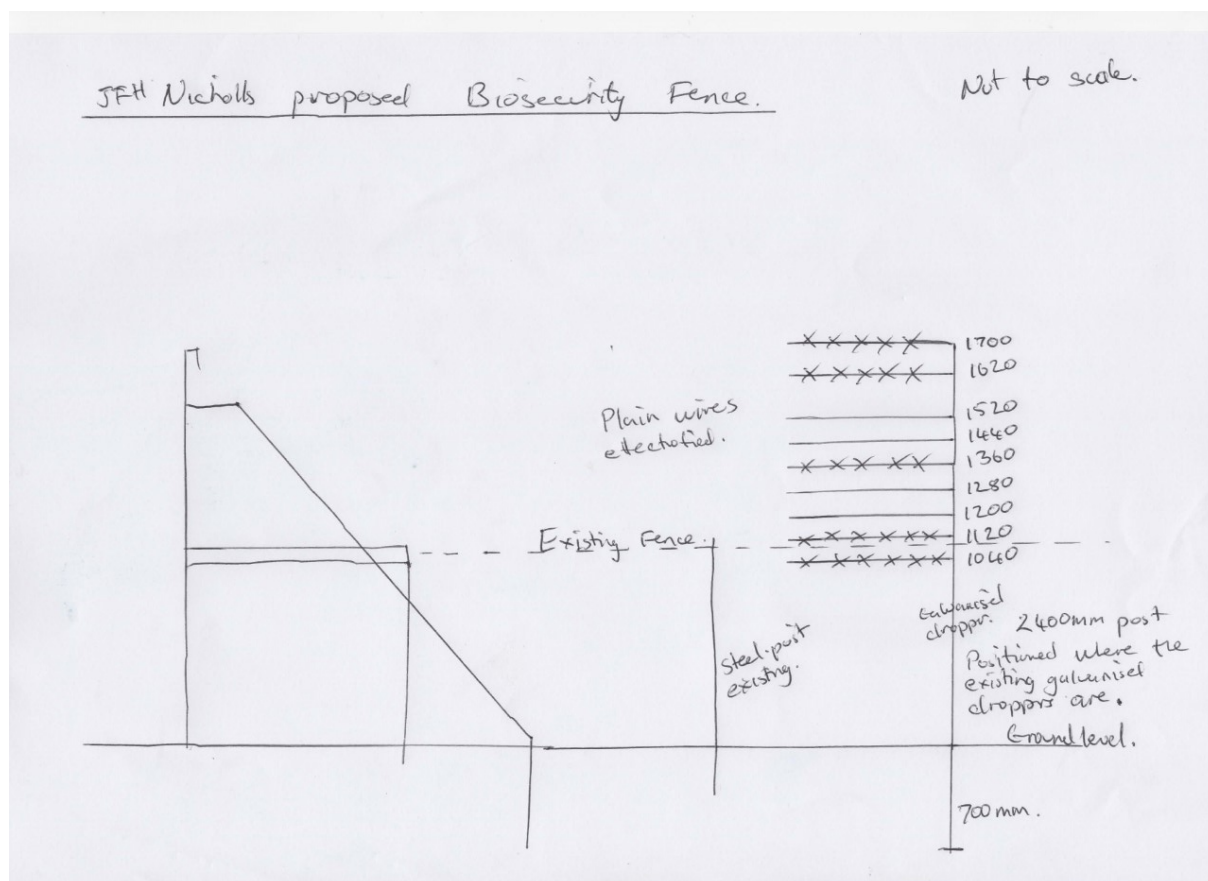 JFH Nicholls proposed Biosecurity Fence.
Not to scale.
1700
1620
Plain wires
electrofied.
1520
1440
1360
1280
1200
Existing Fence.
1120
1040
Steel post
existing.
Galvanised
droppr.
2400mm post
Positioned where the
existing galvanised
droppers are.
Ground level.
700mm.